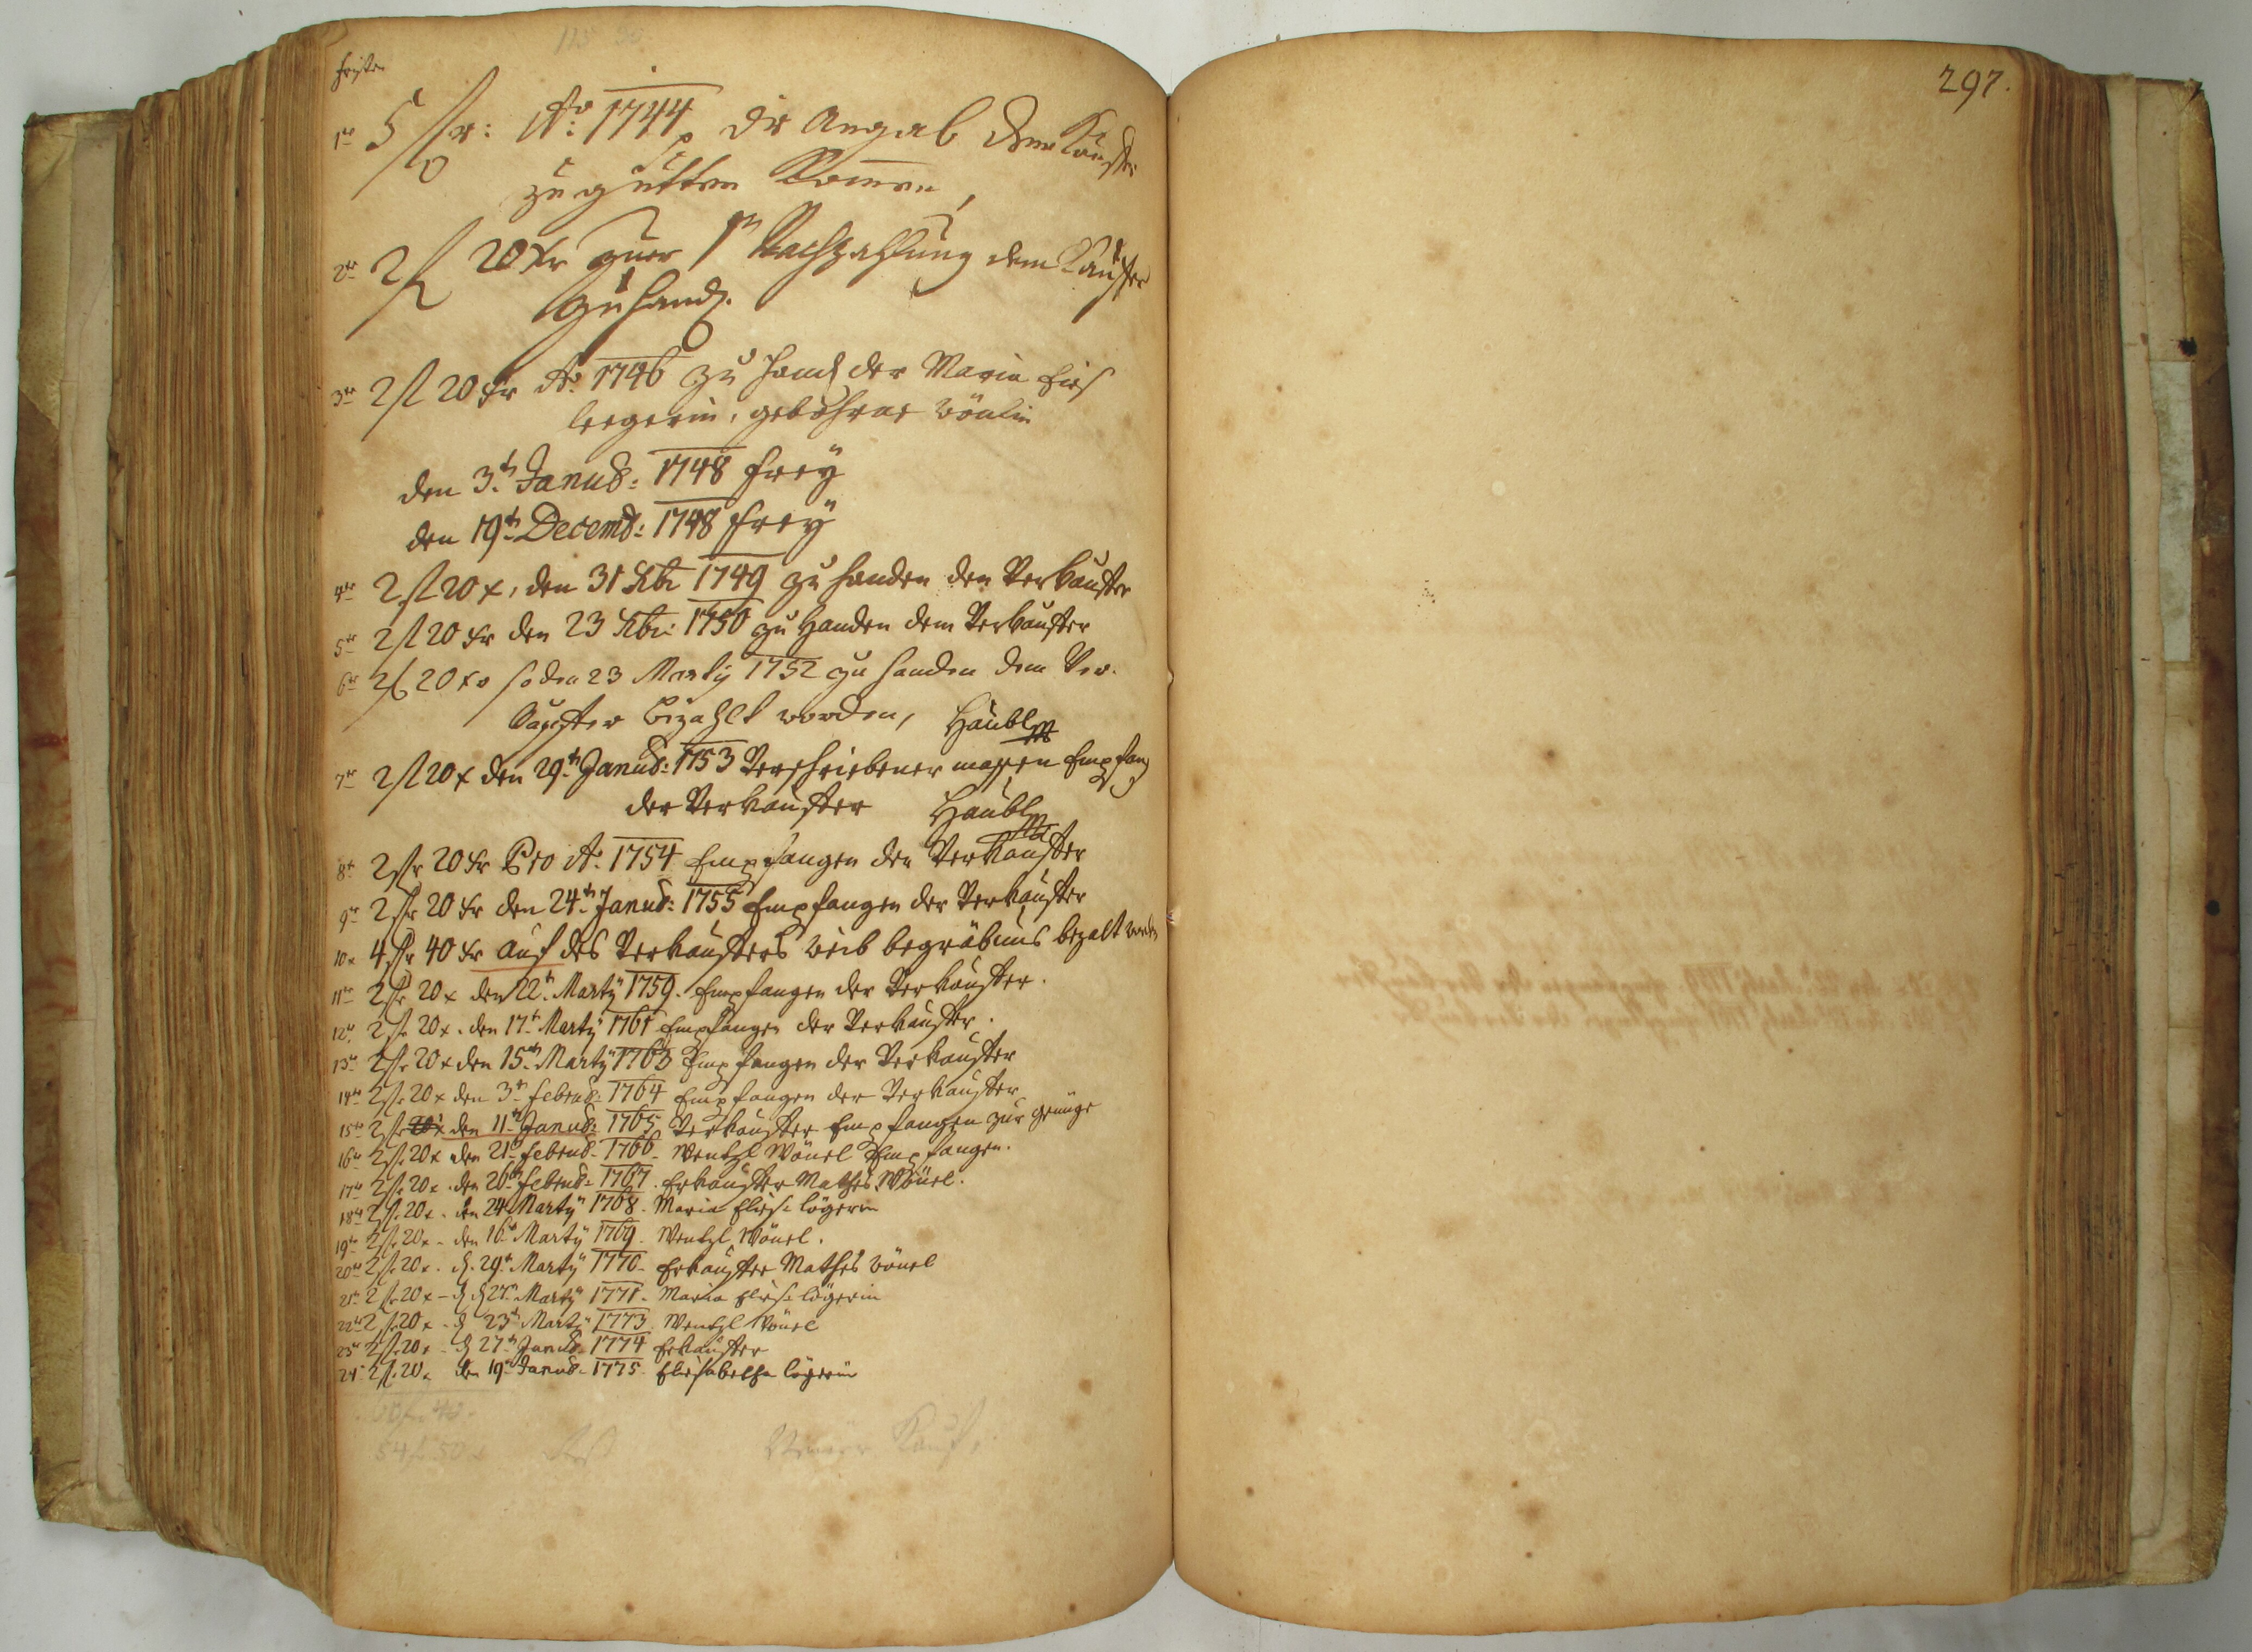 297.
fristen
1te 5 fl: Ao: 1744 die Angab dem Kauffer
zu gutten Kommen,
2te 2 fl 20 xr zur 1ten Nachzahlung dem Kauffer
zu hand.
3te 2 fl 20 Xr Ao: 1746 zu hand der Maria Elis
legerin, gebohrne Wönlin
den 3t. Janua: 1748 frey
den 19t. Decemb: 1748 frey
4te 2 fl 20 x, den 31 Xbr 1749 zu handen den Verkauffer
5te 2 fl 20 Xr den 23 Xbri: 1750 zu Handen dem Verkauffer
6te 2 fl 20 xr so den 23 Martÿ 1752 zu handen dem Ver-
kauffer bezahlt worden, Häubl
7te 2 fl 20 x den 29t. Janua: 1753 Verschriebener massen Empfang
der Verkauffer Haubl
8te 2 fl 20 Xr Pro Ao. 1754 Empfangen der Verkauffer
9te 2 fl 20 Xr den 24t. Janua: 1755 Empfangen der Verkauffer
10te 4 fl 40 Xr auf des Verkauffers weib begräbnus bezalt worden
11te 2 fl 20 x den 22t. Martÿ 1759. Empfangen der Verkauffer.
12te 2 fl 20 x. den 17t. Martÿ 1761 Empfangen der Verkauffer.
13te 2 fl 20 x den 15ten Martÿ 1763 Empfangen der Verkauffer
14te 2 fl 20 x den 3t. Februa: 1764 Empfangen der Verkauffer
15te 2 fl 20 x den 11t. Janua: 1765 Verkauffer Empfangen zur genüge
16te 2 fl. 20 x den 21t. Februa- 1766- Wentzl Wönel Empfangen.
17te 2 fl. 20 x. den 26t. Februa- 1767. Erkauffer Mathes Wönel.
18te 2 fl. 20 x. den 24 Martÿ 1768. Maria Elis: lögerin
19te 2 fl. 20 x - den 16t. Martÿ 1769. Wentzl Wönel.
20te 2 fl. 20 x. d. 29t. Martÿ 1770- Erkauffer Mathes Wönel
21te 2 fl. 20 x - d 27t. Martÿ 1771- Maria Elis: lögerin
22te 2 fl 20 x - d 23t. Martÿ 1773. Wentzl Wönel
23te 2 fl. 20 x - d 27t. Janua- 1774 Erkauffer
24te 2 fl. 20 x den 19t. Janua- 1775. Elisabetha lögerin